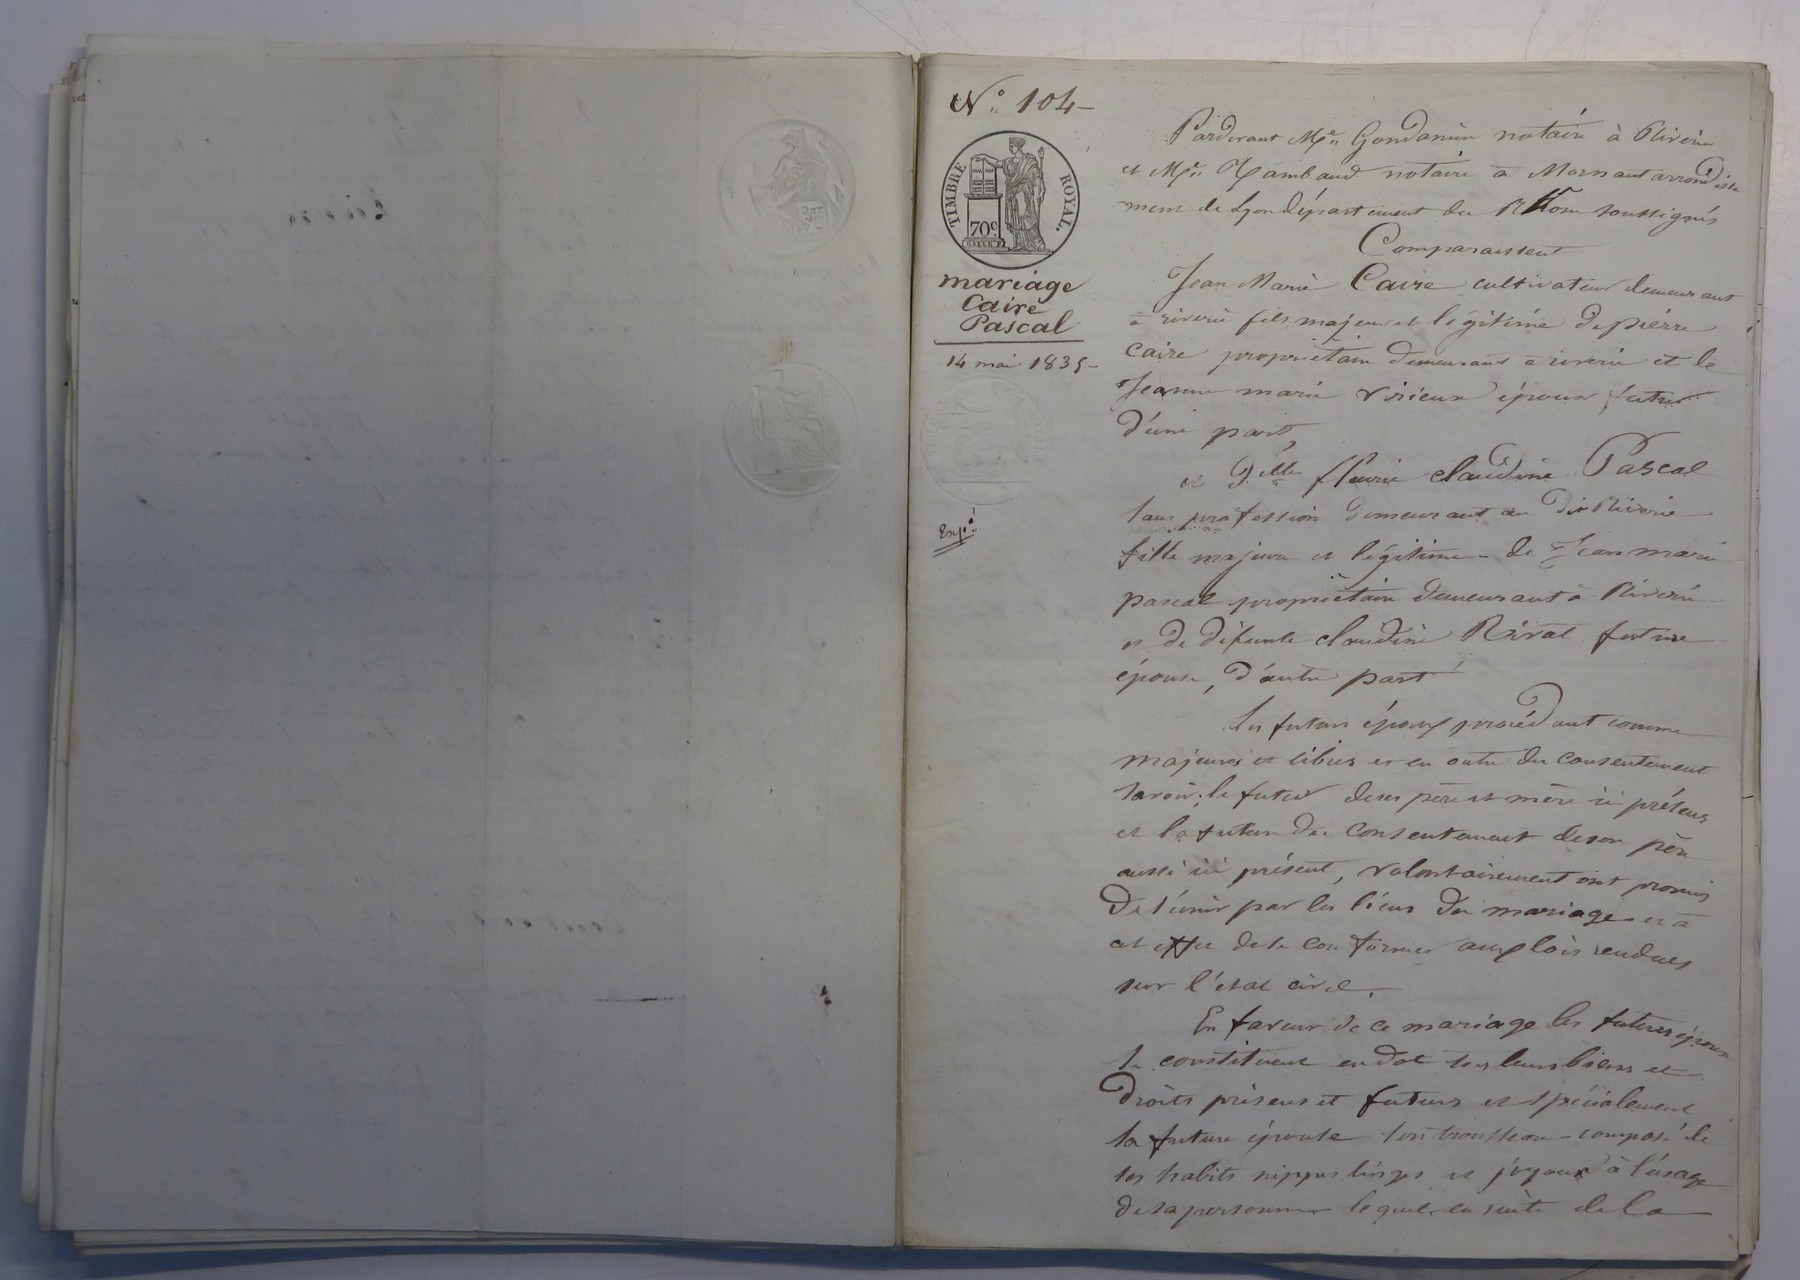 N.° 104
TIMBRE ROYAL.
70c.
mariage
Caire
Pascal
14 mai 1835
Exp.é
Pardevant Me. Gondamin notaire à Riverie
et Me. Rambaud notaire à Mornant arrondisse
ment de Lyon département du Rhône soussignés
Comparaissent
Jean Marie Caire cultivateur demeurant
à riverie fils majeur et légitime de pierre
Caire propriétaire demeurant à riverie et de
Jeanne marie Virieux époux futur
d'une part,
et D.elle fleurie claudine Pascal
sans profession demeurant au dit Riverie
fille majeure et légitime de Jean marie
pascal propriétaire demeurant à Riverie
et de défunte claudine Rivat future
épouse, d'autre part
les futurs époux procédant comme
majeures et libres et en outre du consentement
savoir; le futur de ses père et mère ici présens
et la future du consentement de son père
aussi ici présent, volontairement ont promis
de s'unir par les liens du mariage et à
cet effet de se conformer aux lois rendues
sur l'état civil.
En faveur de ce mariage les futurs époux
se constituent en dot tous leurs biens et
droits présens et futurs et spécialement
la future épouse son trousseau composé de
ses habits nippes linges et joyaux à l'usage
de sa personne lequel en suite de la